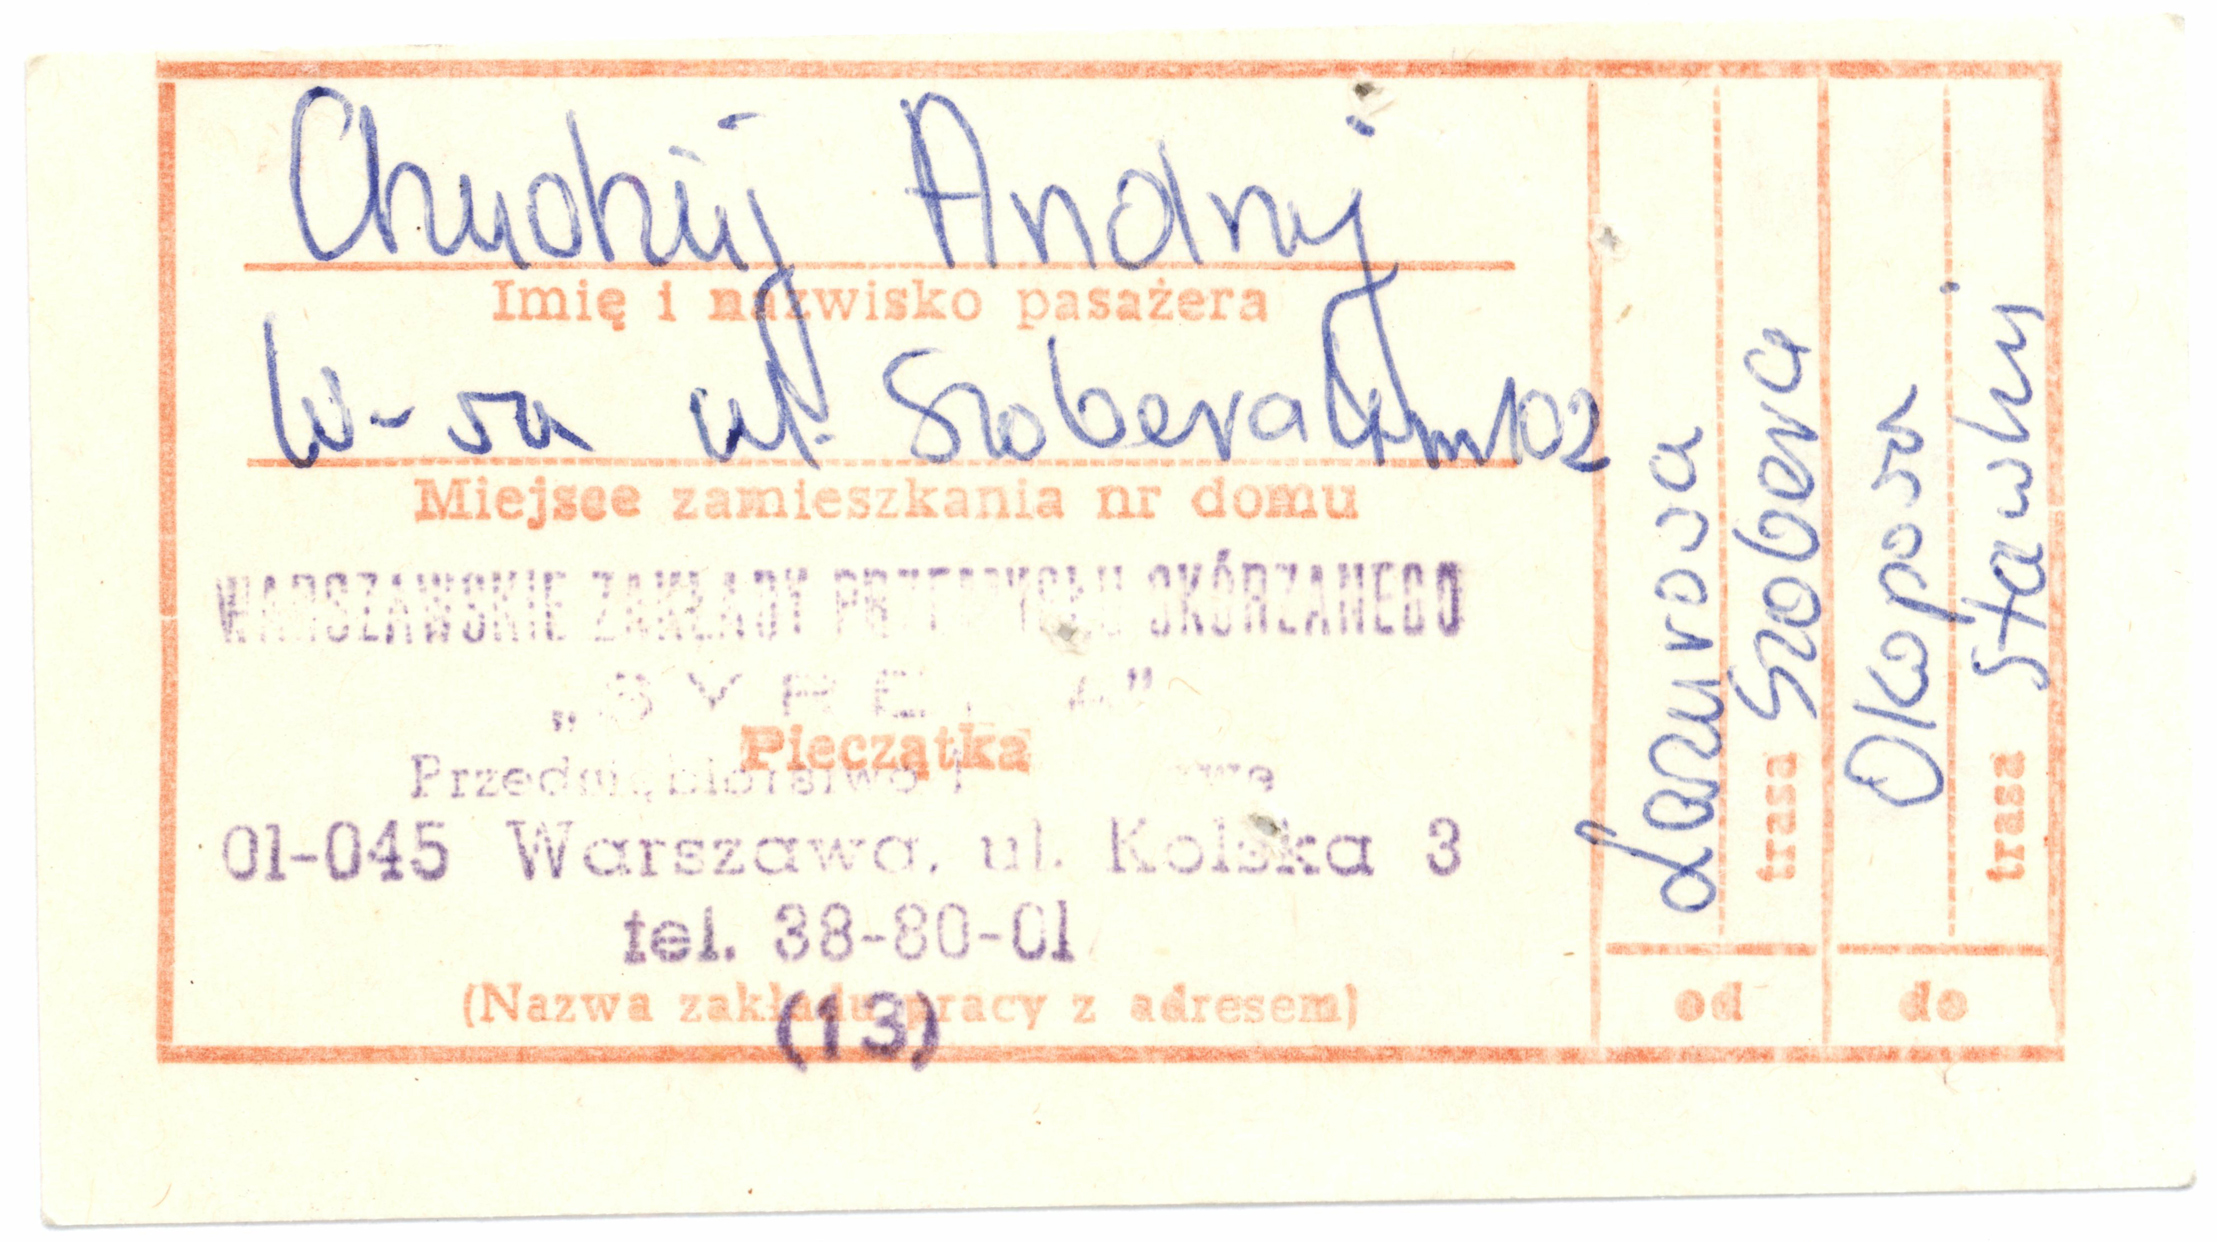 Andrij
Imię i nazwisko pasażera
W-wa ul. Szobera 4 m 102
Miejsce zamieszkania nr domu
WARSZAWSKIE ZAKŁADY PRZEMYSŁU SKÓRZANEGO
„SYRENA”
Pieczątka
Przedsiębiorstwo
01-045 Warszawa, ul. Kolska 3
tel. 38-80-01
(Nazwa zakładu pracy z adresem)
(13)
Lazurowa
Szobera
trasa
od
Okopowa
Stawki
trasa
do